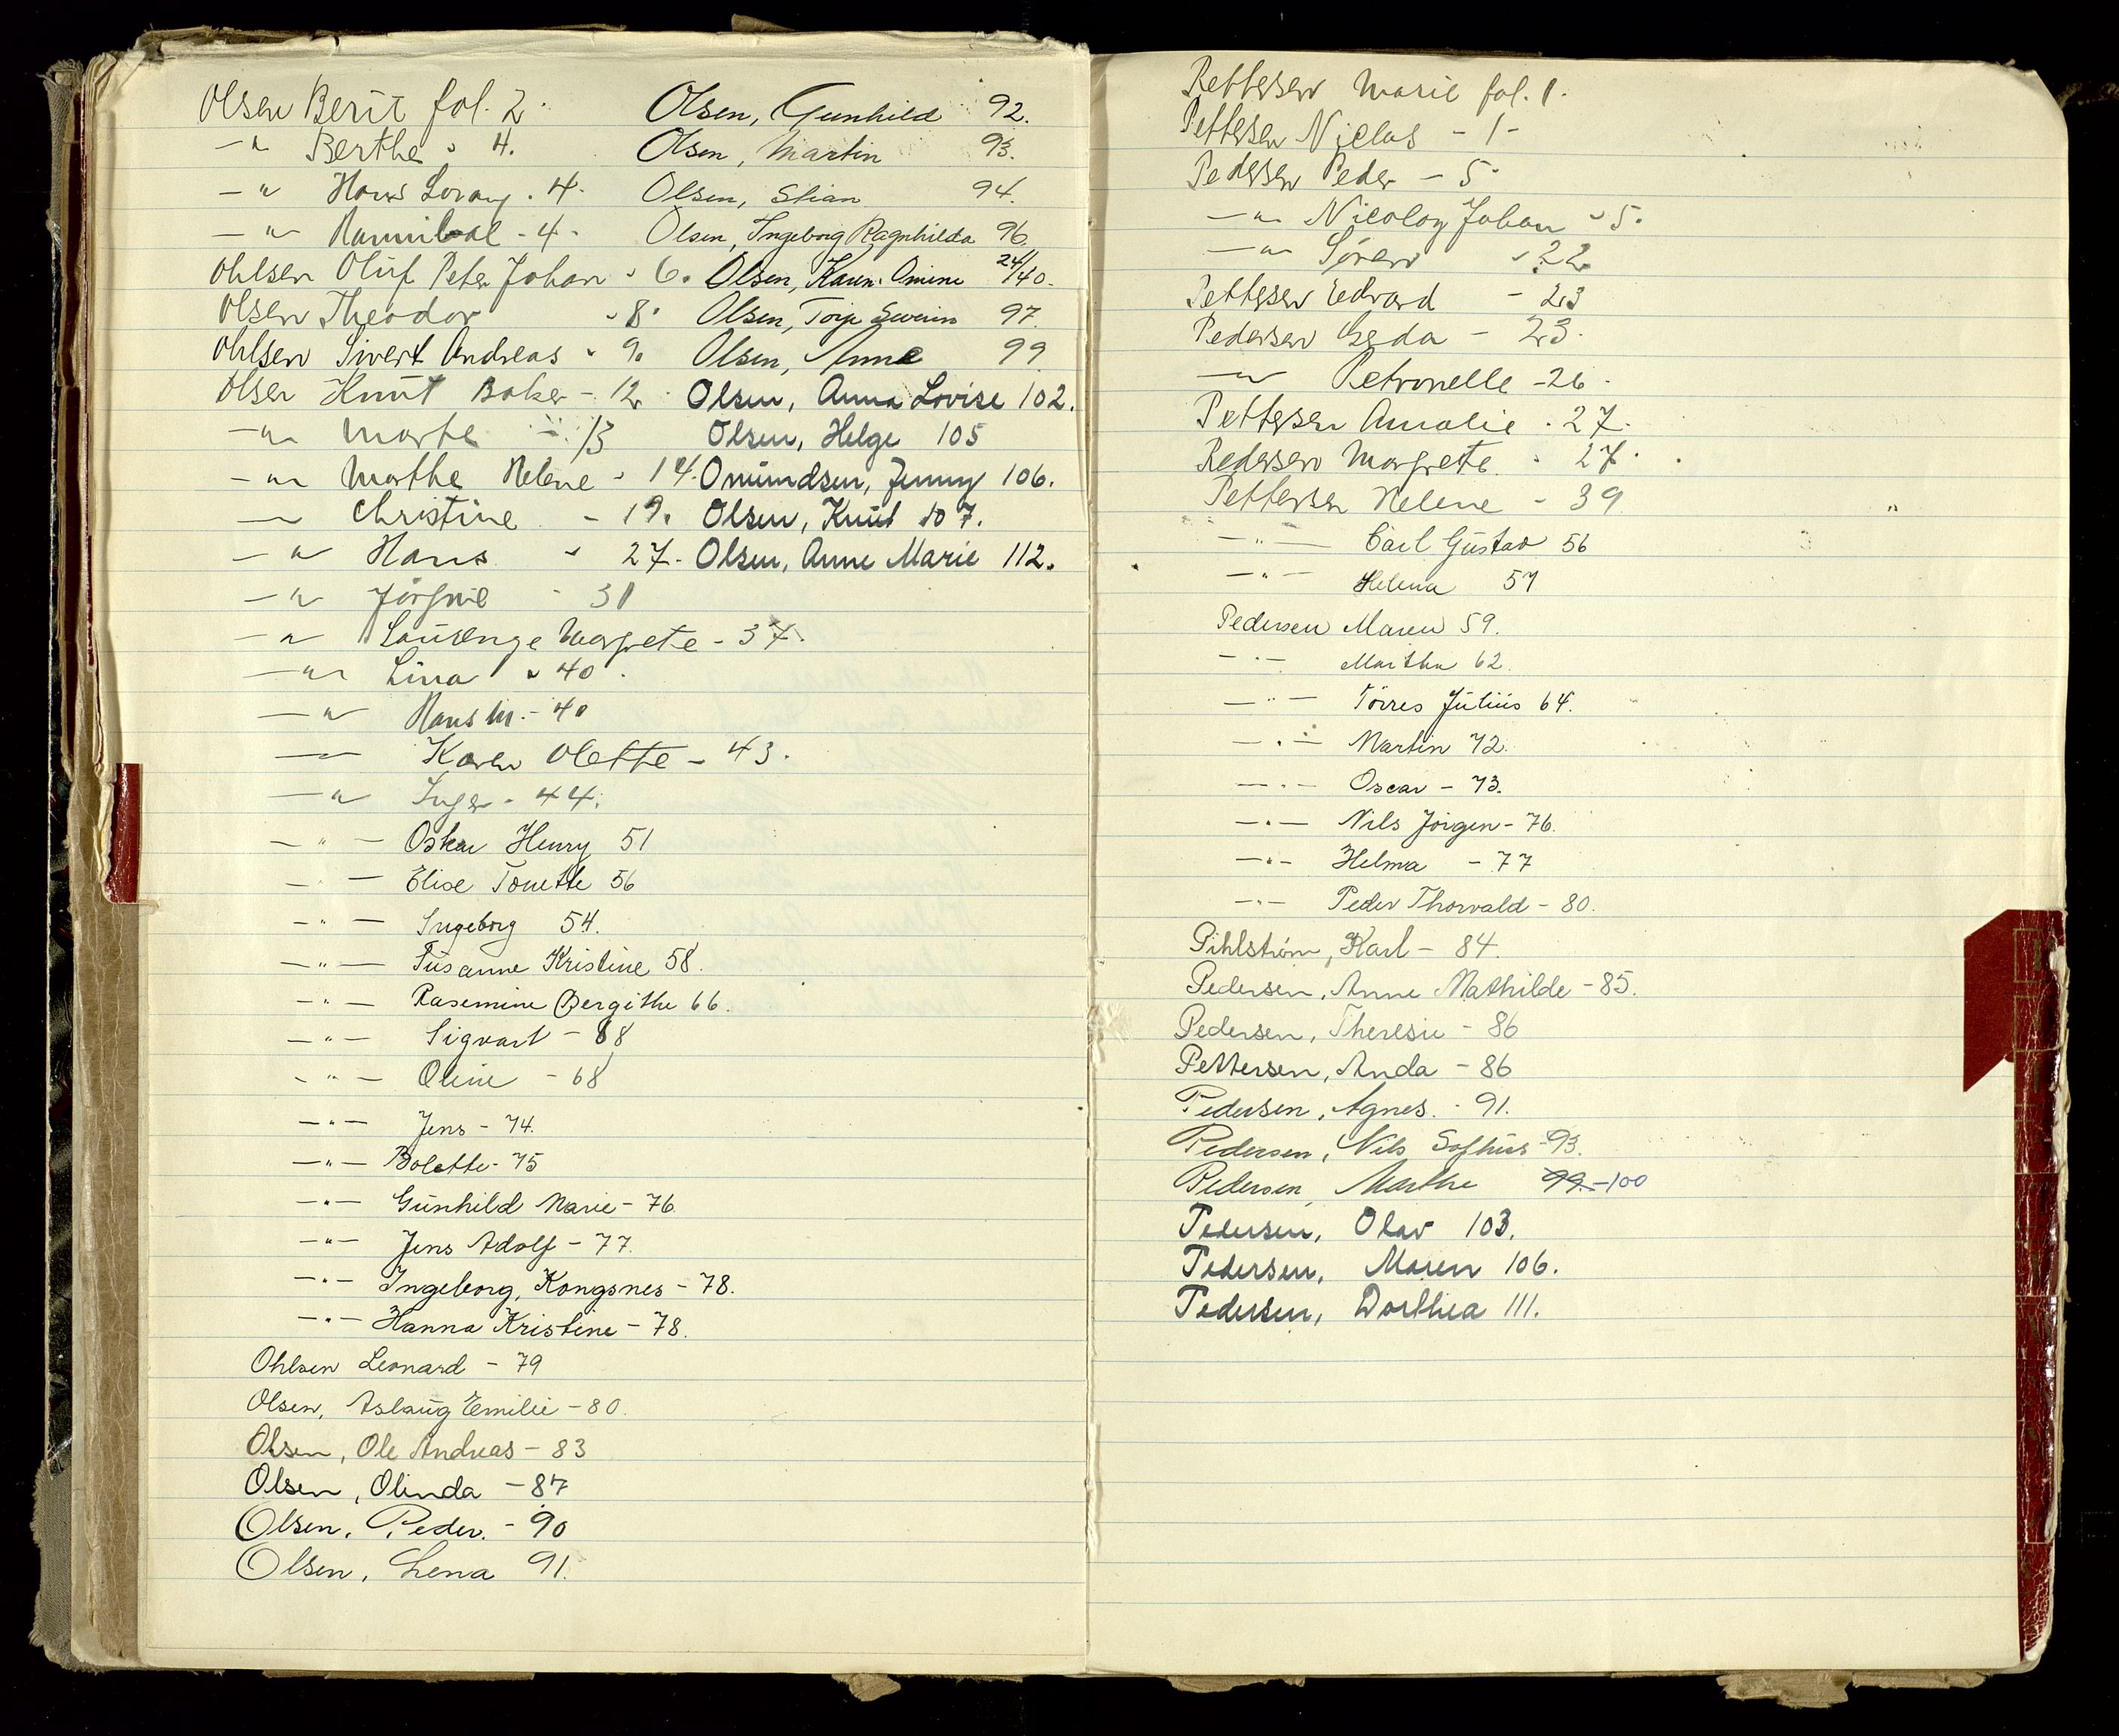 Olsen Berit fol. 2.
—"— Berthe " 4.
—"— Hans Lorang . 4.
—"— Hannibal - 4 -
Ohlsen Oluf Peter Johan " 6.
Olsen Theodor " 8.
Ohlsen Sivert Andreas " 9.
Olsen Knut Baker - 12
—"— Marte - 13
—"— Marthe Helene " 14.
— Christine - 19.
—"— Hans " 27.
—"— Jörgine - 31
—"— Laurenze Margrete - 37.
—"— Lina " 40.
—"— Hans M. - 40
— Karen Olette - 43.
—"— Inger - 44.
—"— Oskar Henry 51
—"— Elise Tonette 56
—"— Ingeborg 54.
—"— Susanne Kristine 58.
—"— Rasmine Bergithe 66.
—"— Sigvart - 68
—"— Oline - 68
—"— Jens - 74.
—"— Bolette - 75
—"— Gunhild Marie - 76.
—"— Jens Adolf - 77.
—"— Ingeborg, Kongsnes - 78.
—"— Hanna Kristine - 78.
Ohlsen Leonard - 79
Olsen, Aslaug Emilie - 80.
Olsen, Ole Andreas - 83
Olsen, Olinda - 87
Olsen, Peder. - 90
Olsen, Lena 91.
Olsen, Gunhild 92.
Olsen, Martin 93.
Olsen, Stian 94.
Olsen, Ingeborg Ragnhilda 96.
Olsen, Karen Omine 24/140.
Olsen, Severin 97.
Olsen, Anna 99.
Olsen, Anna Lovise 102.
Olsen, Helge 105
Omundsen, Jenny 106.
Olsen, Knut 107.
Olsen, Anne Marie 112.
Pettersen Marie fol. 1.
Pettersen Niclas - 1 -
Pedersen Peder - 5 -
—"— Nicolay Johan " 5.
—"— Sören " 22
Pettersen Edvard - 23
Pedersen Gerda - 23.
—"— Petronelle - 26.
Pettersen Amalie . 27.
Pedersen Margrete . 27.
Pettersen Helene - 39
—"— Carl Gustav 56
—"— Helena 57
Pedersen Maren 59.
—"— Martha 62.
—"— Törres Julius 64.
—"— Martin 72.
—"— Oscar - 73.
—"— Nils Jörgen - 76.
—"— Helma - 77
—"— Peder Thorvald - 80.
Pihlström, Karl - 84.
Pedersen, Anne Mathilde - 85.
Pedersen, Theresie - 86
Pettersen, Anda - 86
Pedersen, Agnes. - 91.
Pedersen, Nils Sofhus - 93.
Pedersen, Marthe 99. - 100
Pedersen, Olav 103.
Pedersen, Maren 106.
Pedersen, Dorthea 111.